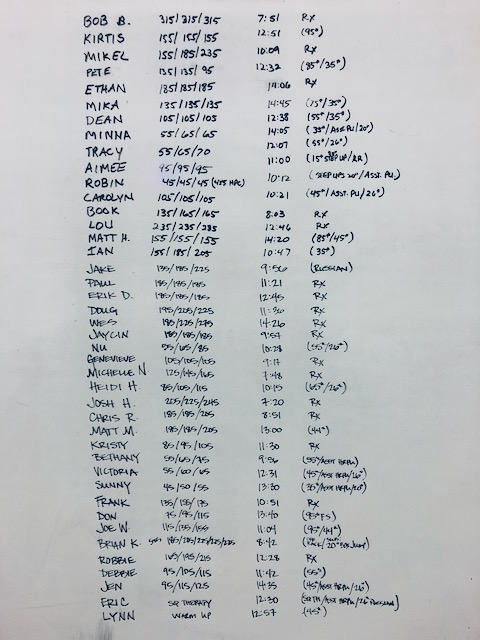 BOB B. 315/315/315 7:51 RX
KIRTIS 155/155/155 12:51 (95#)
MIKEL 155/185/235 10:09 RX
PETE 135/135/95 12:32 (85#/35#)
ETHAN 185/185/185 14:06 RX
MIKA 135/135/135 14:45 (75#/35#)
DEAN 105/105/105 12:38 (55#/35#)
MINNA 55/65/65 14:05
TRACY 55/65/70 12:07 (55#/26#)
AIMEE 95/95/95 11:00
ROBIN 45/45/45 10:12
CAROLYN 105/105/105 10:21 (45#/ASST. PU/26#)
BOOK 135/165/165 8:03 RX
LOU 235/235/235 12:46 RX
MATT H. 155/155/155 14:20 (85#/45#)
IAN 155/185/205 10:47 (35#)
JAKE 135/185/225 9:56 (RUSSIAN)
PAUL 185/185/185 11:21 RX
ERIK D. 185/185/185 12:45 RX
DOUG 195/205/225 11:30 RX
WES 185/225/275 14:26 RX
JAYCIN 185/185/185 9:57 RX
NU 55/65/85 10:28 (55#/26#)
GENEVIEVE 105/105/105 9:17 RX
MICHELLE N 125/145/165 7:48 RX
HEIDI H. 85/105/115 10:15 (65#/26#)
JOSH H. 205/225/245 7:20 RX
CHRIS R. 185/185/205 8:51 RX
MATT M. 185/185/205 13:00 (44#)
KRISTY 85/95/105 11:30 RX
BETHANY 55/65/75 9:56
VICTORIA 55/60/65 12:31
SUNNY 45/50/55 13:30
FRANK 135/155/175 10:51 RX
DON 95/95/115 13:40 (95# FS)
JOE W. 115/135/155 11:04 (95#/44#)
BRIAN K. 8:42
ROBBIE 165/195/215 12:28 RX
DEBBIE 95/105/115 11:42 (55#)
JEN 95/115/125 14:35
ERIC SQ THERAPY 12:30
LYNN WARM UP 12:57 (45#)